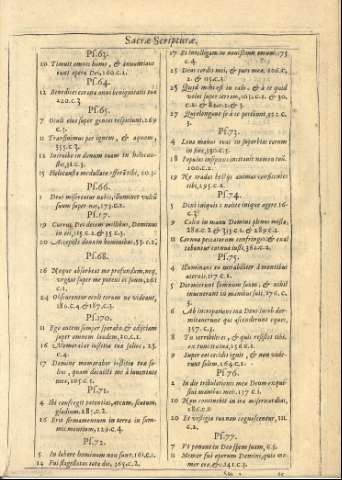 Sacræ Scripturæ.
Ps. 63.
10 Timuit omnis homo, & annuntiave
runt opera Dei, 160.c.1.
Ps. 64.
12 Benedices coronæ anni benignitatis tuæ
220.c.3
Ps. 65.
7 Oculi eius super gentes respiciunt, 269
c.3.
11 Transivimus per ignem, & aquam,
355.c.3.
12 Introibo in domum tuam in holocau-
15 Holocausta medullata
Ps. 66.
1 Deus misereatur nobis, illuminet vultū
suum super nos, 173.c.2.
18 Currus Dei decem millibus, Dominus
in eis,
Accepisti dona in hominibus,
Ps. 68.
16 Neque absorbeat me profundum, neq.
urgeat super me puteus os suum, 261
c.1.
24 Obscurentur oculi eorum ne videant,
186.c.4. & 187.c.3.
Ps. 70.
Ego autem semper sperabo, & adijciam
super omnem laudem, 20.c.1.
16 Memorabor iustitiæ tuæ solius, 25.
c.4.
17 Domine memorabor iustitiæ tuæ so-
lius, quam docuisti me à iuventute
mea, 205.c.3.
Ps. 71.
Ibi confregit potentias, arcum, scutum,
gladium, 285.c.2.
16 Erit firmamentum in terra in sum-
mis montium, 129.c.4.
Ps. 72.
5 In labore hominum non sunt, 161.c.1.
14 Fui flagellatus tota die, 365.c.2.
17 Et intelligam in novissimis eorum, 75
c.4.
25 Deus cordis mei, & pars mea, 106.c.
25 Quid mihi est in cælo, & à te quid
volui super terram,
27 Qui elongant se à te peribunt, 352.c.
3.
Ps. 73.
4 Leva manus tuas in superbias eorum
in fine, 350.c.5.
18 Populus insipiens incitavit nomen tuū.
100.c.2.
19 Ne tradas bestijs animas confitentes
tibi, 195.c.2
Ps. 74.
5 Dixi iniquis: nolite inique agere, 16.
c.3.
9 Calix in manu Domini plenus misto,
286.c.2. & 313.c.2. & 289.c.2.
11 Cornua peccatorum confringā: & exal
tabuntur cornua iusti, 362.c.2.
Ps. 75.
4 Illuminans tu mirabiliter à montibus
æternis, 117.c.1.
5 Dormierunt somnum suum, & nihil
invenerunt in manibus suis, 176.c.
3.
6 Ab increpatione tua Deus Iacob dor-
mitaverunt qui ascenderunt equos,
357.c.3.
8 Tu terribilis es, & quis resistet tibi,
ex tunc ira tua, 156.c.1.
9 Super eos cecidit ignis, & non vide-
runt solem, 164.c.1.
Ps. 76.
2 In die tribulationis meæ Deum exqui-
sivi manibus meis, 137.c.1.
10 Non continebit in ira misericordias,
186.c.2
20 Et vestigia tua non cognoscentur, 111.
c.2.
Ps. 77.
7 Vt ponant in Deo spem suam, c.3.
11 Memor fui operum Domini, quia me-
mor ero, &c. 241.c.3.